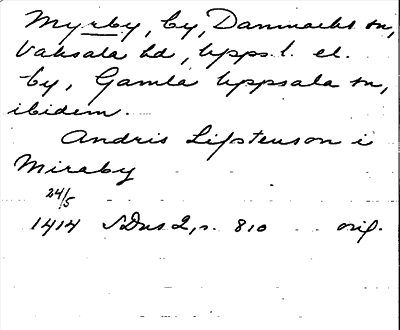 Myrby, by, Danmarks sn,
Vaksala hd, Upps. l. el.
-by, Gamla Uppsala sn,
ibidem.
Andris Lifstenson i
Miraby
24/5
1414 SDns 2, s. 810 orig.